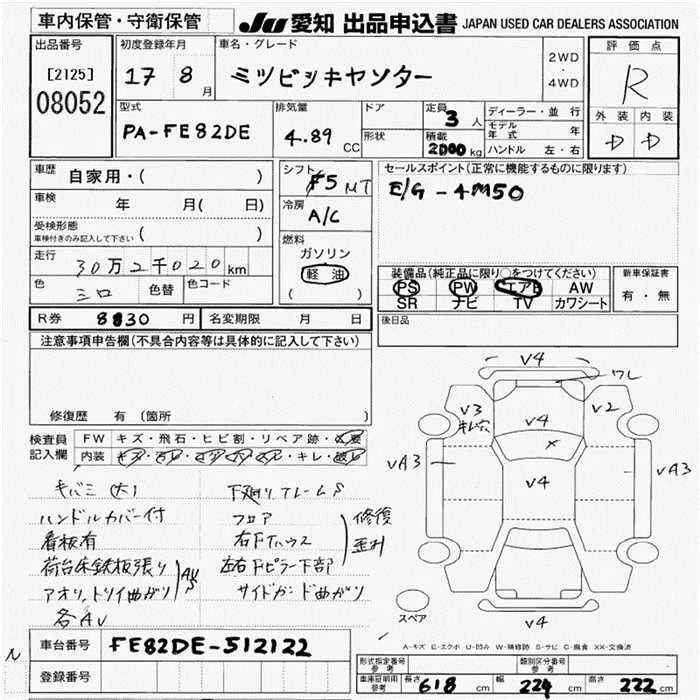 車内保管・守衛保管 JU 愛知 出品申込書 JAPAN USED CAR DEALERS ASSOCIATION
出品番号 [2125] 08052
初度登録年月 17 8月
車名・グレード ミツビッキヤンター
2WD・4WD
評価点 R
外装 内装
D D
型式 PA-FE82DE
排気量 4.89 CC
ドア
形状
定員 3人
積載 2000kg
ディーラー・並行
モデル年式 年
ハンドル 左・右
車歴 自家用・( )
車検 年 月( 日)
受検形態 車検付きのみ記入して下さい ( )
走行 30万2千020km
色 シロ 色替 色コード
シフト F5 MT
冷房 A/C
燃料 ガソリン
軽油
( )
セールスポイント(正常に機能するものに限ります)
E/G-4M50
装備品(純正品に限り○をつけてください)
PS PW エアB AW
SR ナビ TV カワシート
新車保証書
有・無
R券 8830円 名変期限 月 日
後日品
注意事項申告欄(不具合内容等は具体的に記入して下さい)
修復歴 有(箇所 )
検査員記入欄
FW キズ・飛石・ヒビ割・リペア跡・
内装 キレ・
ハンドルカバー付
看板有
荷台床鉄板張り
アオリ、トリイ曲がり
各AU
下廻りフレームS
フロア
右Fハウス
左右Fピラー下部
サイドガード曲がり
修復
歪み
V4
ワレ
V3 キレ穴
V4
V2
VA3
V4
VA3
V4
スペア
A-キズ E-エクボ U-凹み W-補修跡 S-サビ C-腐食 XX-交換済
N
車台番号 FE82DE-512122
登録番号
形式指定番号 参考
類別区分番号 参考
車庫証明用 参考 長さ 618 cm 幅 224 cm 高さ 222 cm